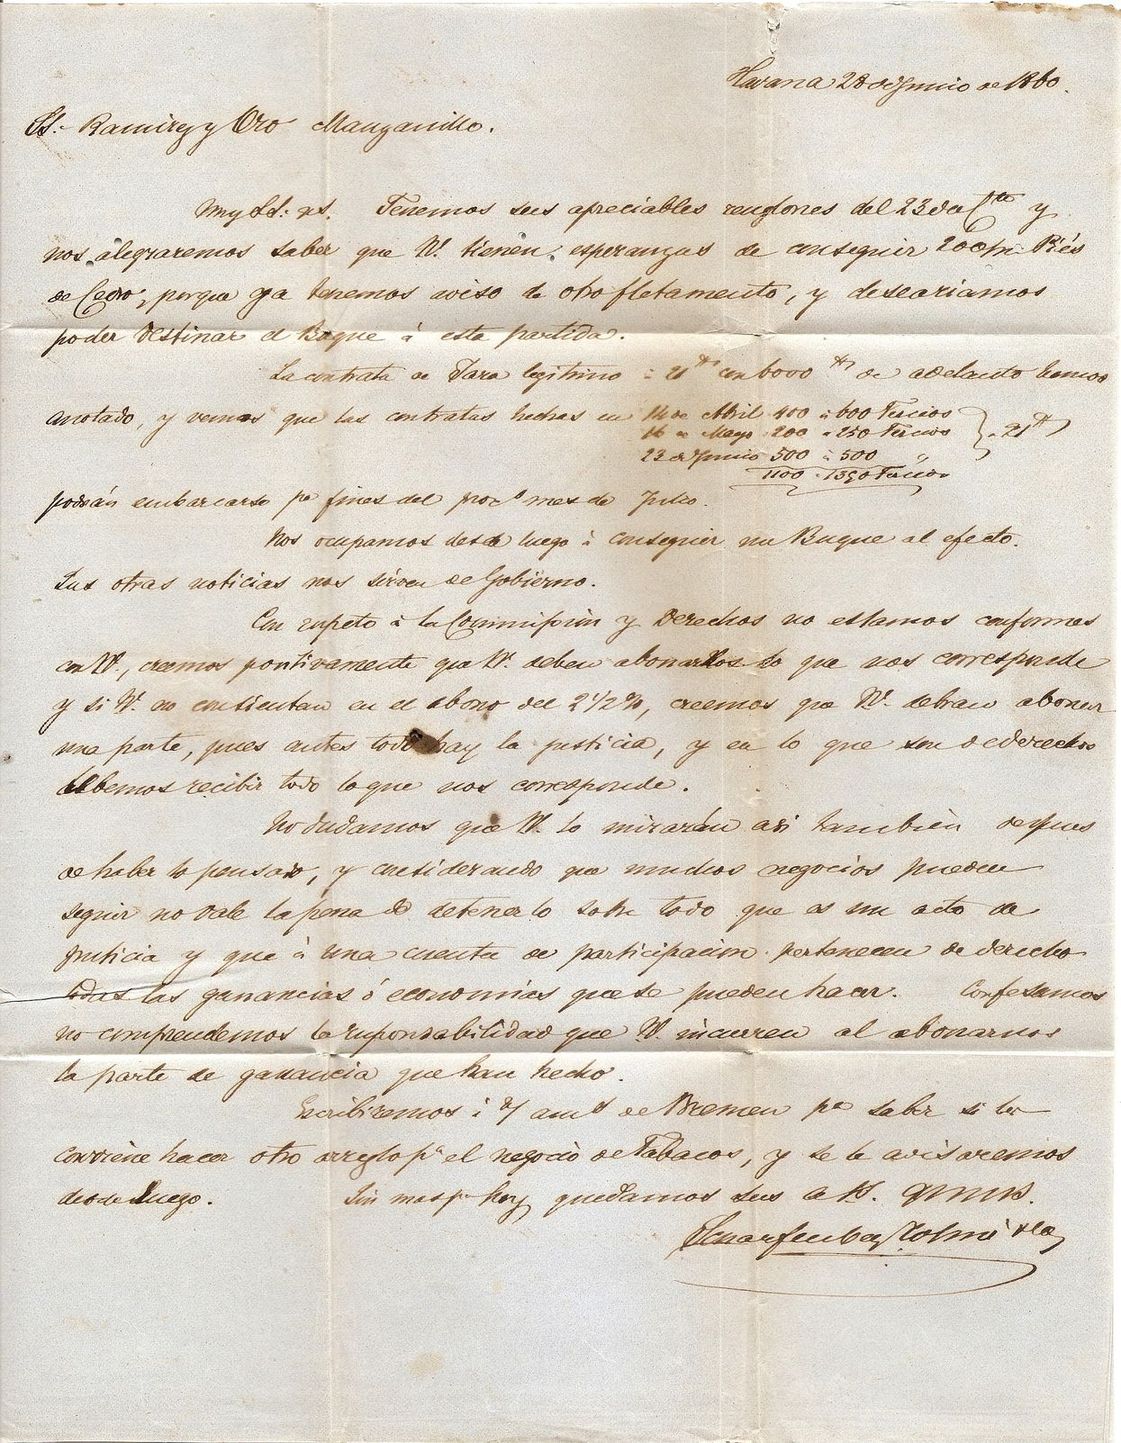 Havana 28 de Junio de 1860.
Sres Ramirez y Oro Manzanillo.
Muy SS: ns. Tenemos sus apreciables renglones del 23 de Cte y
nos alegraremos saber que V. tienen esperanzas de conseguir 200/m Piés
de Cedro, porque ya tenemos aviso de otro fletamento, y deseariamos
poder destinar el Buque á esta partida.
La contrata de Jara legitimo á 21 con 6000 de adelanto hemos
anotado, y vemos que las contratas hechas en 14 de Abril 400 á 600 Tercios
16 de Mayo 200 á 250 Tercios
23 de Junio 500 á 500 "
á 21
1100 - 1350 Tercios
podrán embarcarse pa fines del proco mes de Julio.
Nos ocupamos desde luego á conseguir un Buque al efecto.
Sus otras noticias nos sirven de Gobierno.
Con respeto á la Commission y Derechos no estamos conformes
con V., creemos positivamente que V. deben abonarnos lo que nos corresponde
y si V. no consientan en el abono del 2 1/2 %, creemos que V. debran abonar
una parte, pues antes todo hay la justicia, y en lo que son de derechos
debemos recibir todo lo que nos corresponde.
No dudamos que V. lo mirarán asi tambien despues
de haber lo pensado, y considerando que muchos negocios pueden
seguir no vale la pena de detenerlo sobre todo que es un acto de
justicia y que á una cuenta de participacion pertenecen de derecho
todas las ganancias ó economias que se pueden hacer. Confesamos
no comprendemos la responsabilidad que V. incurren al abonarnos
la parte de ganancia que han hecho.
Escribiremos á amos de Bremen pa saber si les
conviene hacer otro arreglo pa el negocio de Tabacos, y se lo avisaremos
desde luego. Sin mas pr hoy quedamos sus a S. QBSM.
Scharfenberg Tolmé & Ca